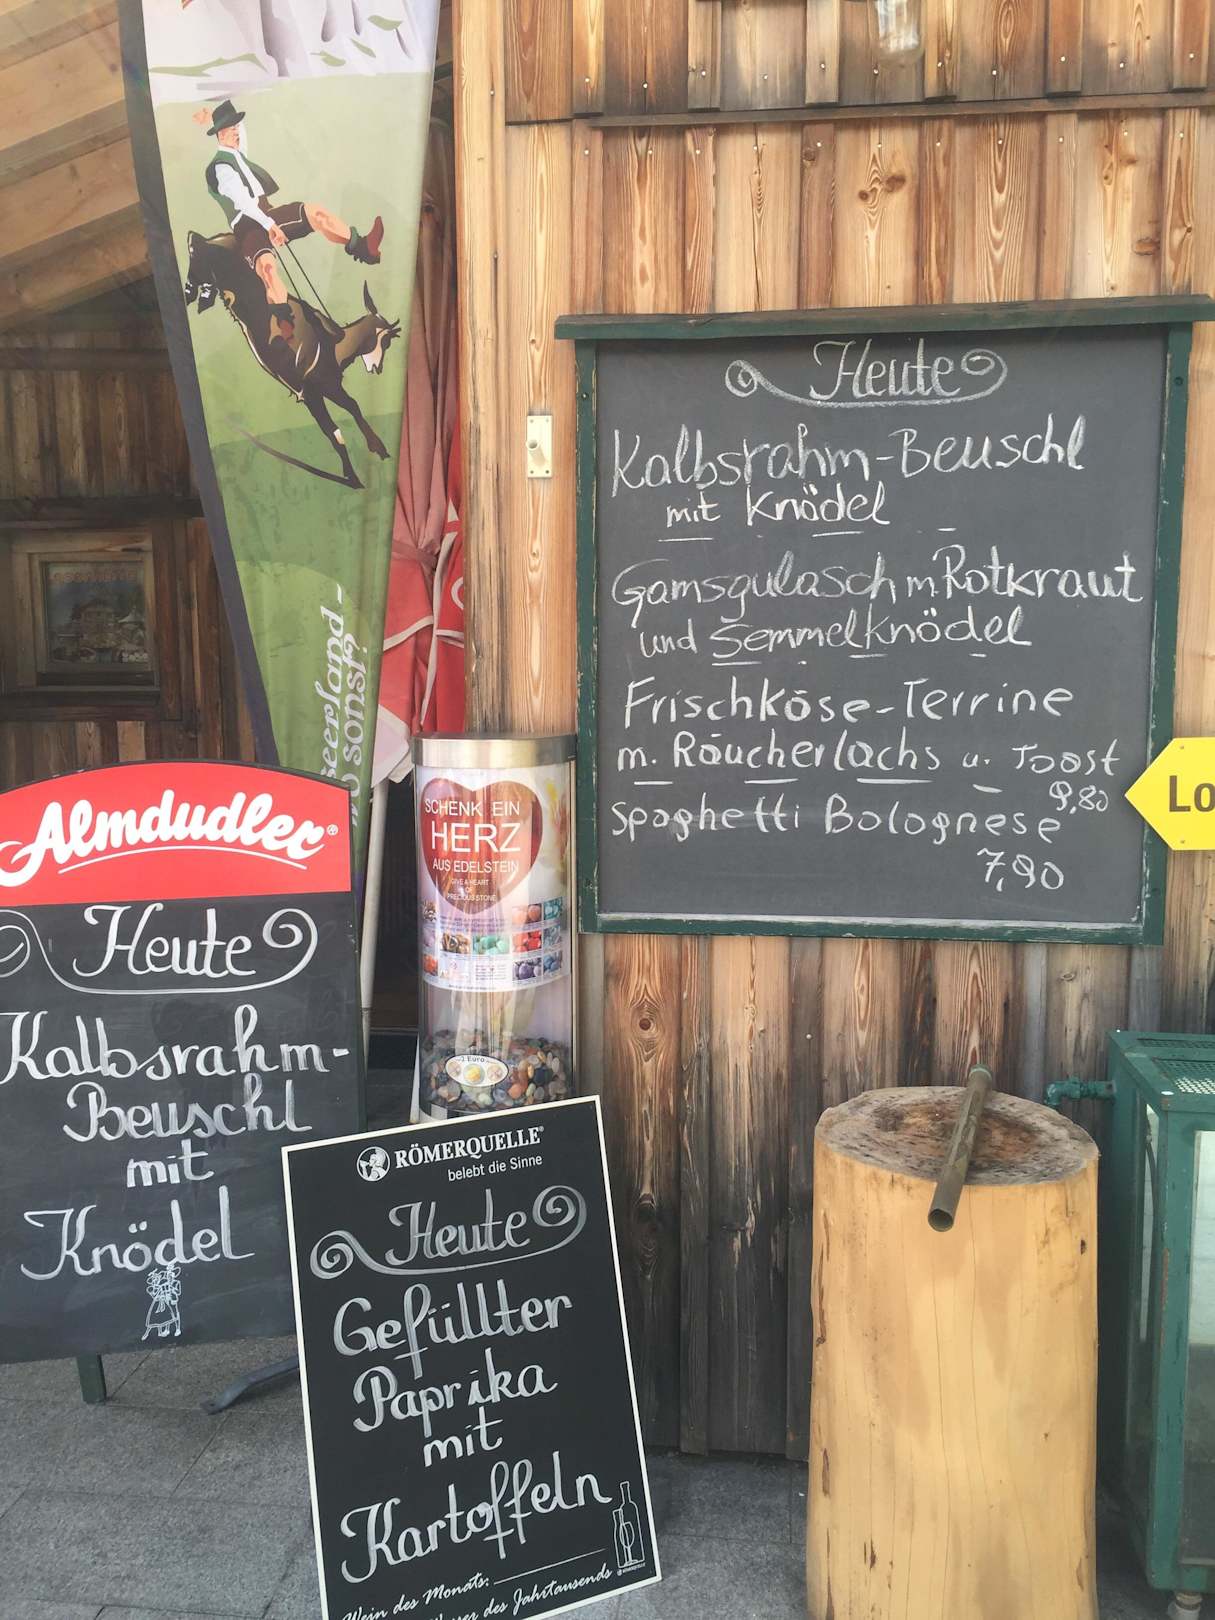 Heute
Kalbsrahm-Beuschl
mit Knödel
Gamsgulasch m. Rotkraut
und Semmelknödel
Frischköse-Terrine
m. Räucherlachs u. Toast
9,80
Spaghetti Bolognese
7,90
Lo
SCHENK EIN
HERZ
AUS EDELSTEIN
GIVE A HEART
OF
PRECIOUS STONE
2 Euro
Almdudler®
Heute
Kalbsrahm-
Beuschl
mit
Knödel
RÖMERQUELLE®
belebt die Sinne
Heute
Gefüllter
Paprika
mit
Kartoffeln
Wein des Monats:
des Jahrtausends
eerland-
sonst?